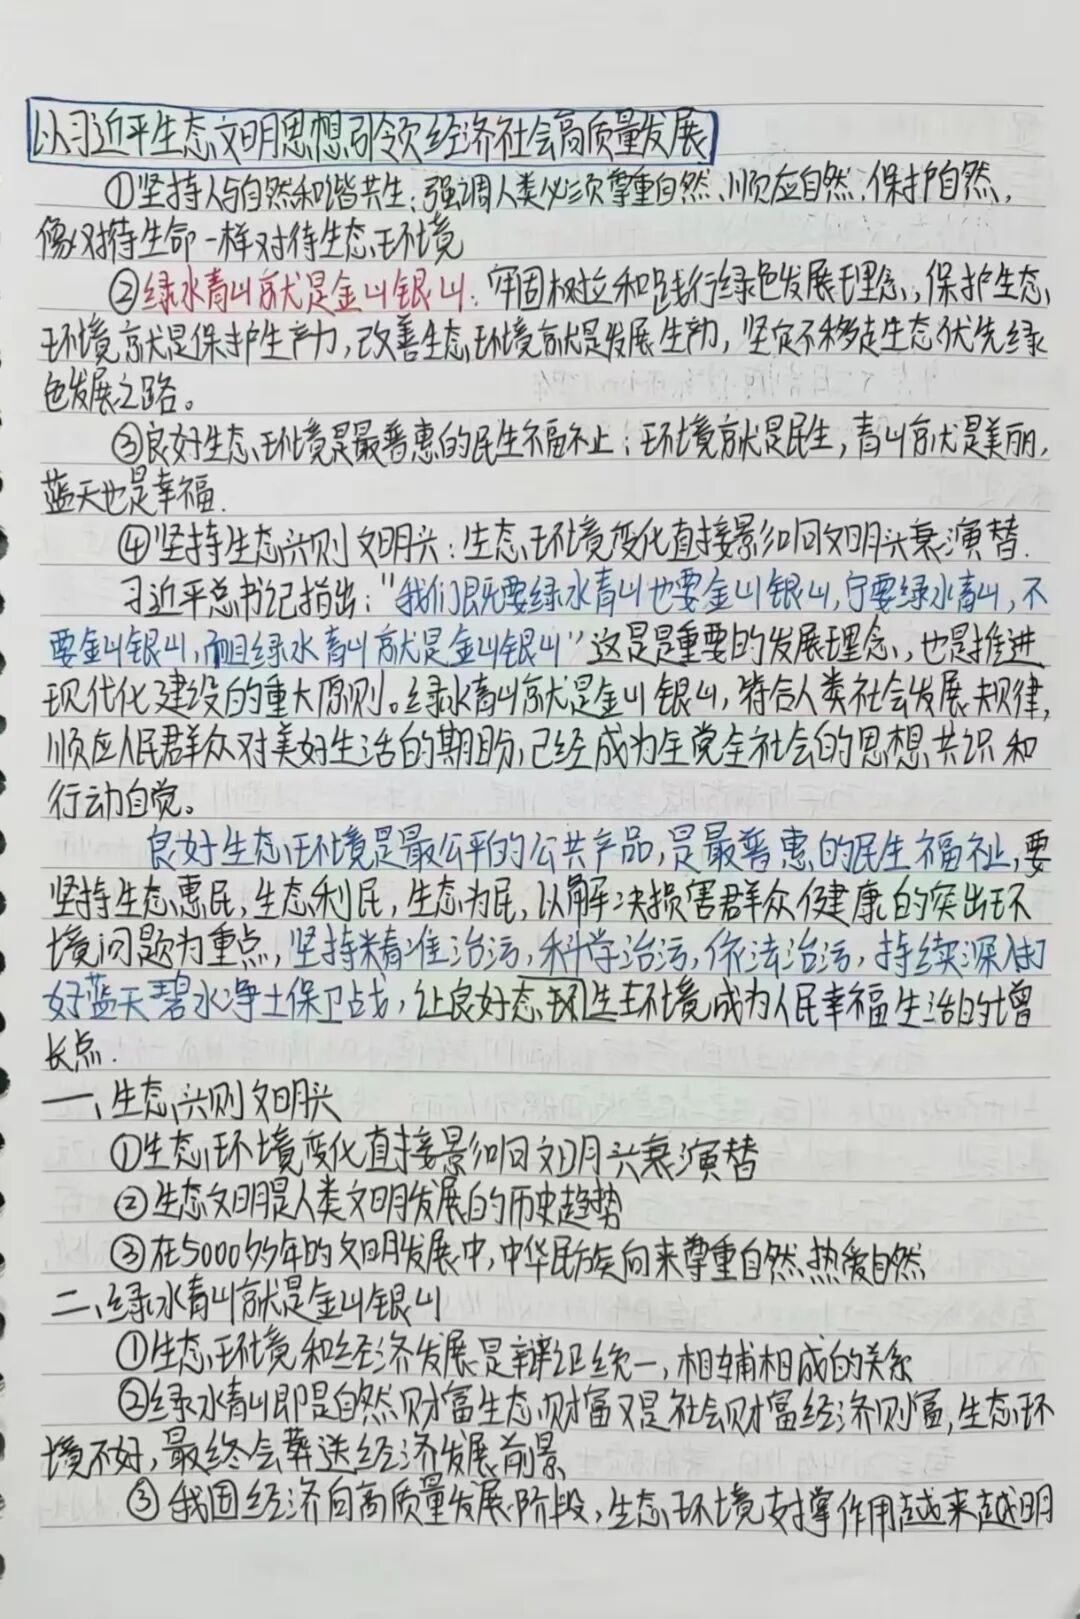 以习近平生态文明思想引领经济社会高质量发展
①坚持人与自然和谐共生：强调人类必须尊重自然、顺应自然、保护自然，
像对待生命一样对待生态环境
②绿水青山就是金山银山：牢固树立和践行绿色发展理念，保护生态
环境就是保护生产力，改善生态环境就是发展生产力，坚定不移走生态优先绿
色发展之路。
③良好生态环境是最普惠的民生福祉：环境就是民生，青山就是美丽，
蓝天也是幸福.
④坚持生态兴则文明兴：生态环境变化直接影响文明兴衰演替.
习近平总书记指出："我们既要绿水青山也要金山银山，宁要绿水青山，不
要金山银山，而且绿水青山就是金山银山"这是重要的发展理念，也是推进
现代化建设的重大原则。绿水青山就是金山银山，符合人类社会发展规律，
顺应人民群众对美好生活的期盼，已经成为全党全社会的思想共识和
行动自觉。
良好生态环境是最公平的公共产品，是最普惠的民生福祉，要
坚持生态惠民，生态利民，生态为民，以解决损害群众健康的突出环
境问题为重点，坚持精准治污，科学治污，依法治污，持续深入打
好蓝天碧水净土保卫战，让良好态环生环境成为人民幸福生活的增
长点.
一、生态兴则文明兴
①生态环境变化直接影响文明兴衰演替
②生态文明是人类文明发展的历史趋势
③在5000多年的文明发展中，中华民族向来尊重自然热爱自然
二、绿水青山就是金山银山
①生态环境和经济发展是辩证统一，相辅相成的关系
②绿水青山即是自然财富生态财富又是社会财富经济财富，生态环
境不好，最终会葬送经济发展前景
③我国经济向高质量发展阶段，生态环境支撑作用越来越明